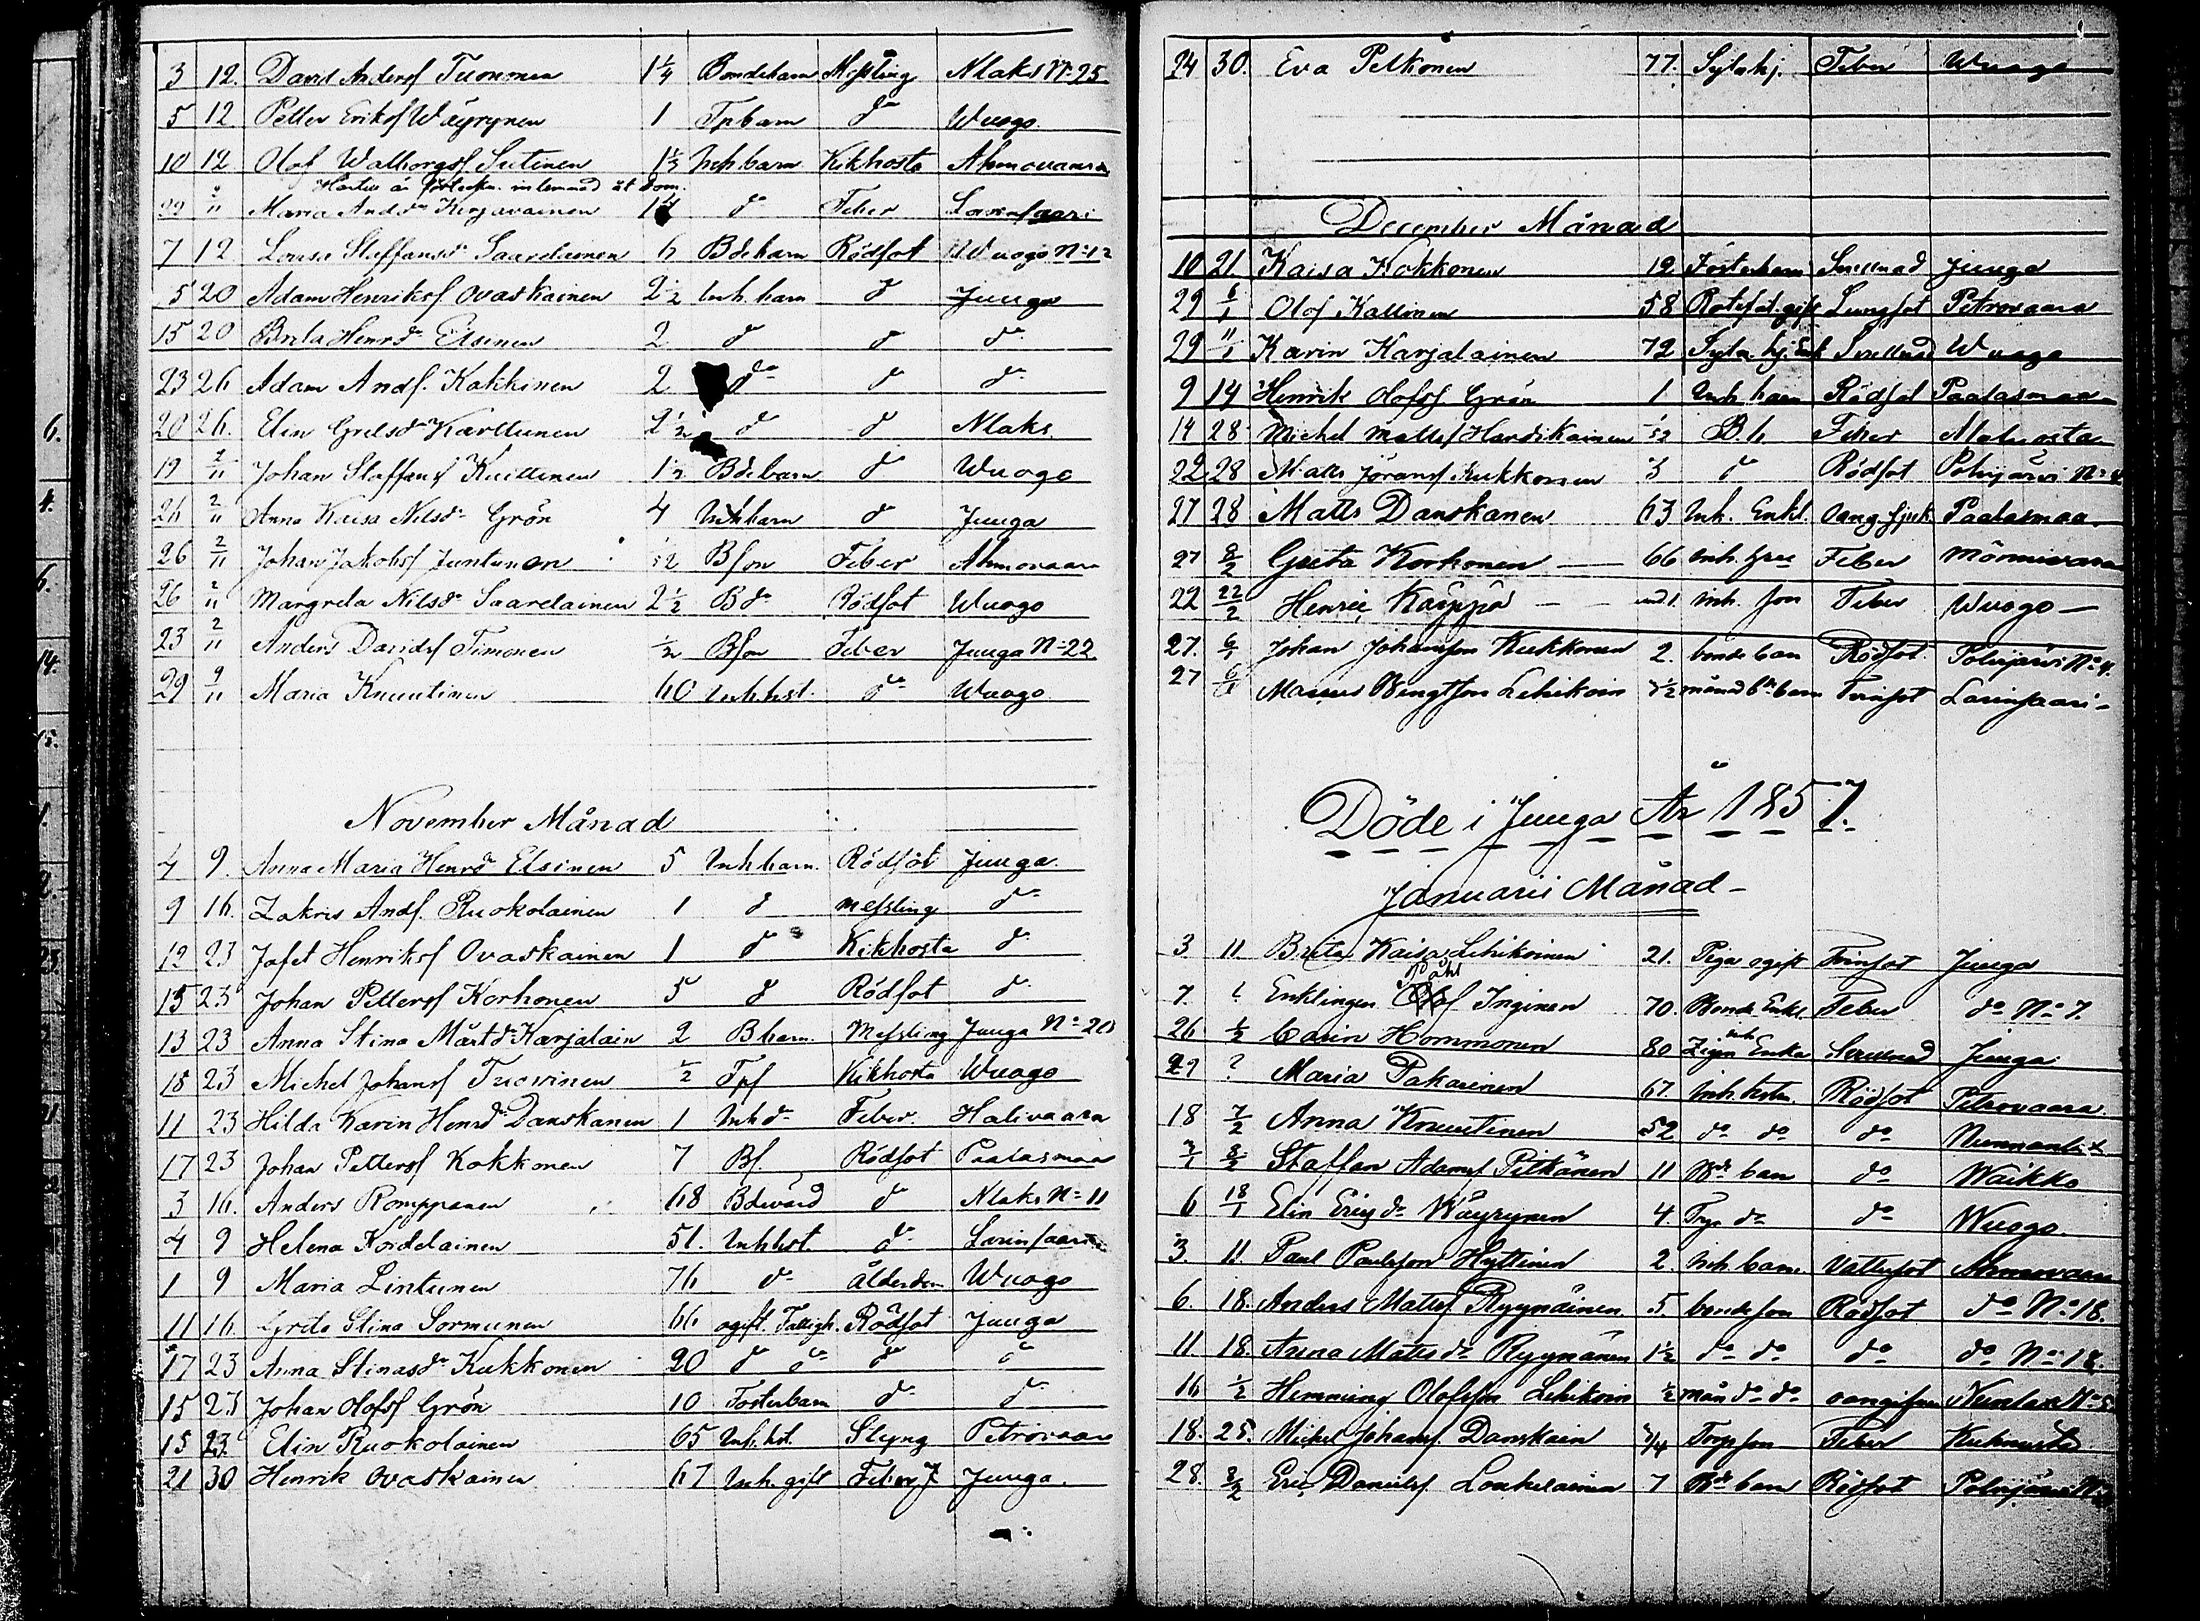 3 12. David Andersf Tuonnen 1¼ Bondebarn Messling Nlaks Nº 25
5 12 Petter Eriksf Wäyrynen 1 Tpbarn dº Wuogo
10 12 Olof Walborgsf Sutinen 1½ Inhbarn Kikhosta Ahmovaara
22 2/11 Maria Andsdr Kerjavainen 14 dº Feber Larinsaari
7 12 Lovisa Staffansdr Saarelainen 6 Bdebarn Rödsot Wuogo Nº 12
5 20 Adam Henriksf Ovaskainen 2½ Inh. barn d Juuga
15 20 Brita Henrdr Elsinen 2 d d dº
23 26 Adam Andf. Kakkinen 2 dº d dº
20 26. Elin Grelsdr Karttunen 2½ d d Nlaks.
19 2/11 Johan Staffansf Kuittinen 1½ Bdebarn d Wuogo
26 2/11 Anna Kaisa Nilsdr Grön 4 Inhbarn d Juuga
26 2/11 Johan Jakobsf Juntunen 1/12 Bson Feber Ahmovaara
26 2/11 Margreta Nilsdr Saarelainen 2½ Bdr Rödsot Wuogo
23 2/11 Anders Davidsf Timonen ½ Bson Feber Juuga Nº 22
29 9/11 Maria Knuutinen 60 Inhhst. dº Wuogo
November Månad
4 9. Anna Maria Henrdr Elsinen 5 Inhbarn. Rödsot Juuga.
9 16. Zakris Andf. Ruokolainen 1 d messling dº
12 23 Jafet Henriksf Ovaskainen 1 d Kikhosta d
15 23 Johan Pettersf Korhonen 5 d Rödsot d
13 23 Anna Stina Mårtdr Karjalain 2 Bbarn. Messling Juuga Nº 20
18 23 Michel Johansf Tuovinen ½ Tpf Kikhosta Wuogo
11 23 Hilda Karin Henrdr Danskanen 1 Inhdr Feber. Halivaara
17 23 Johan Pettersf Kokkonen 7 Bf. Rödsot Paalasmaa
3 16. Anders Romppanen 68 Bdevärd d Nlaks Nº 11
4 9 Helena Koidelainen 51. Inhhst. d Larinsaari
1 9 Maria Lintunen 76 d ålderdom Wuogo
11 16 Greta Stina Sormunen 66 ogift. Fattigh. Rödsot Juuga
17 23 Anna Stinasdr Kukkonen 20 d dº d dº
15 23 Johan Olofsf Grön 10 Fosterbarn d. d.
15 23 Elin Ruokolainen 65 Inh.hst. Styng Petrovaara
21 30 Henrik Ovaskainen 67 Inh. gift Feber Juuga.
24 30. Eva Pelkonen 77. Sytnhj. Feber Wuogo
December Månad
10 21. Kaisa Kokkonen 12 Fosterbarn Juuga
29 6/1 Olof Kallinen 58 Rotefat. gift Lungsot Petrovaara
29 11/1 Karin Karjalainen 72 Wuogo
9 14 Henrik Olofsf Grön 1 Inh barn Rödsot Paalasmaa
14 28 Michel Mattsf Hardikainen 1/12 B.b Feber
22 28 Matts Jöransf Kukkonen 3 d Rödsot Polvijärvi Nº 4
27 28 Matts Danskanen 63 Inh. Enkl. Paalasmaa
27 8/2 Greta Korhonen 66 Feber Mönnivaara
22 22/2 Henric Käyppö und. 1. inh. son Feber Wuogo
27. 6/1 Johan Johansson Kukkonen 2. bonde barn Rödsot Polvijärvi Nº 4.
27 6/1 Bengtsson Lehikoin månad barn Tvinsot Larinsaari
Döde i Juuga År 1857.
Januarii Månad
3 11 Brita Kaisa Lehikoinen 21. Piga ogift Tvinsot Juuga
7. ? Enklingen Påhl Inginen 70. Bonde Enkl. Feber dº Nº 7.
26 ½ Carin Hommonen 80 inh Enka Juuga
29 ? Maria Pakarinen 67. inh. hstru. Rödsot Petrovaara.
18 7/2 Anna Knuutinen 52 dº dº dº
8/2 Staffan Adamsf Pitkänen 11 Bde barn dº Waikko
6 18/1 Elin Ericsdr Wäyrynen 4. Torp dº dº Wuogo.
3. 11. Paul Paulsson Hyttinen 2. inh barn Vattusot Ahmovaara
6. 18. Anders Mattsf Ryynäinen 5. bonde son Rödsot dº Nº 18.
11 18. Anna Mattsdr Ryynänen 1½ dº dº dº dº Nº 18.
16 ½ Hemming Olofsson Lehikoin ½ mån dº dº oangifven
18. 25. Michel Johansf. Danskain ¾ Torpson Feber
28. 8/2 Eric Danielsf Loukelainen 7 Bde barn Rödsot Polvijärvi